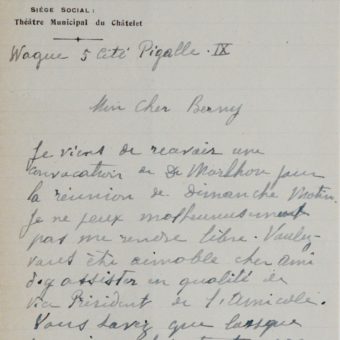 SIÈGE SOCIAL :
Théâtre Municipal du Châtelet
Wague 5 Cité Pigalle. IX
Mon Cher Berny
Je viens de recevoir une
convocation de Dr Marlhon pour
la réunion de dimanche matin.
Je ne peux malheureusement
pas me rendre libre. Voulez
vous être aimable cher ami
d'y assister en qualité de
vice Président de l'Amicale.
Vous savez que lorsque